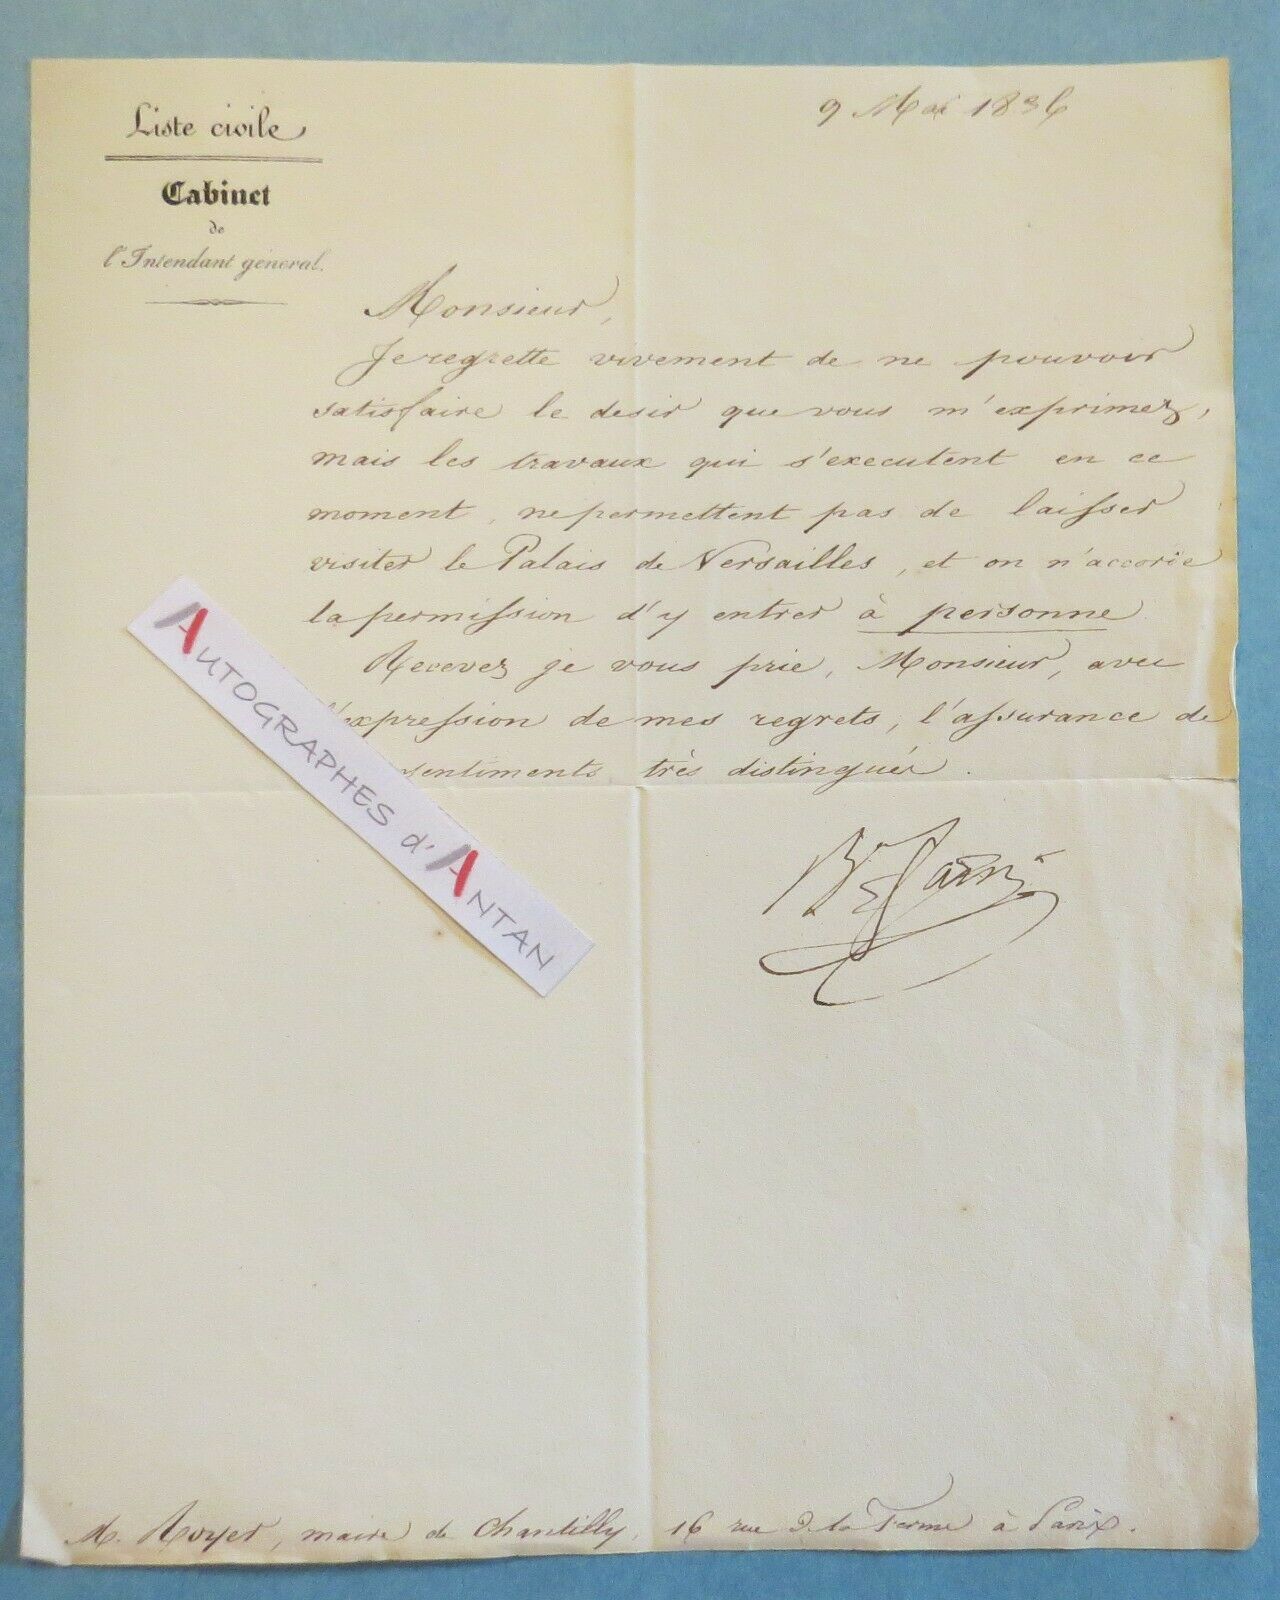 Liste civile
Cabinet
de
l'Intendant général.
9 Mai 1836
Monsieur,
Je regrette vivement de ne pouvoir
satisfaire le desir que vous m'exprimez,
mais les travaux qui s'executent en ce
moment, ne permettent pas de laisser
visiter le Palais de Versailles, et on n'accorde
la permission d'y entrer à personne
Recevez je vous prie, Monsieur, avec
l'expression de mes regrets, l'assurance de
sentiments très distingués.
AUTOGRAPHES d'ANTAN
M. Royer, maire de Chantilly, 16 rue de la Ferme à Paris.